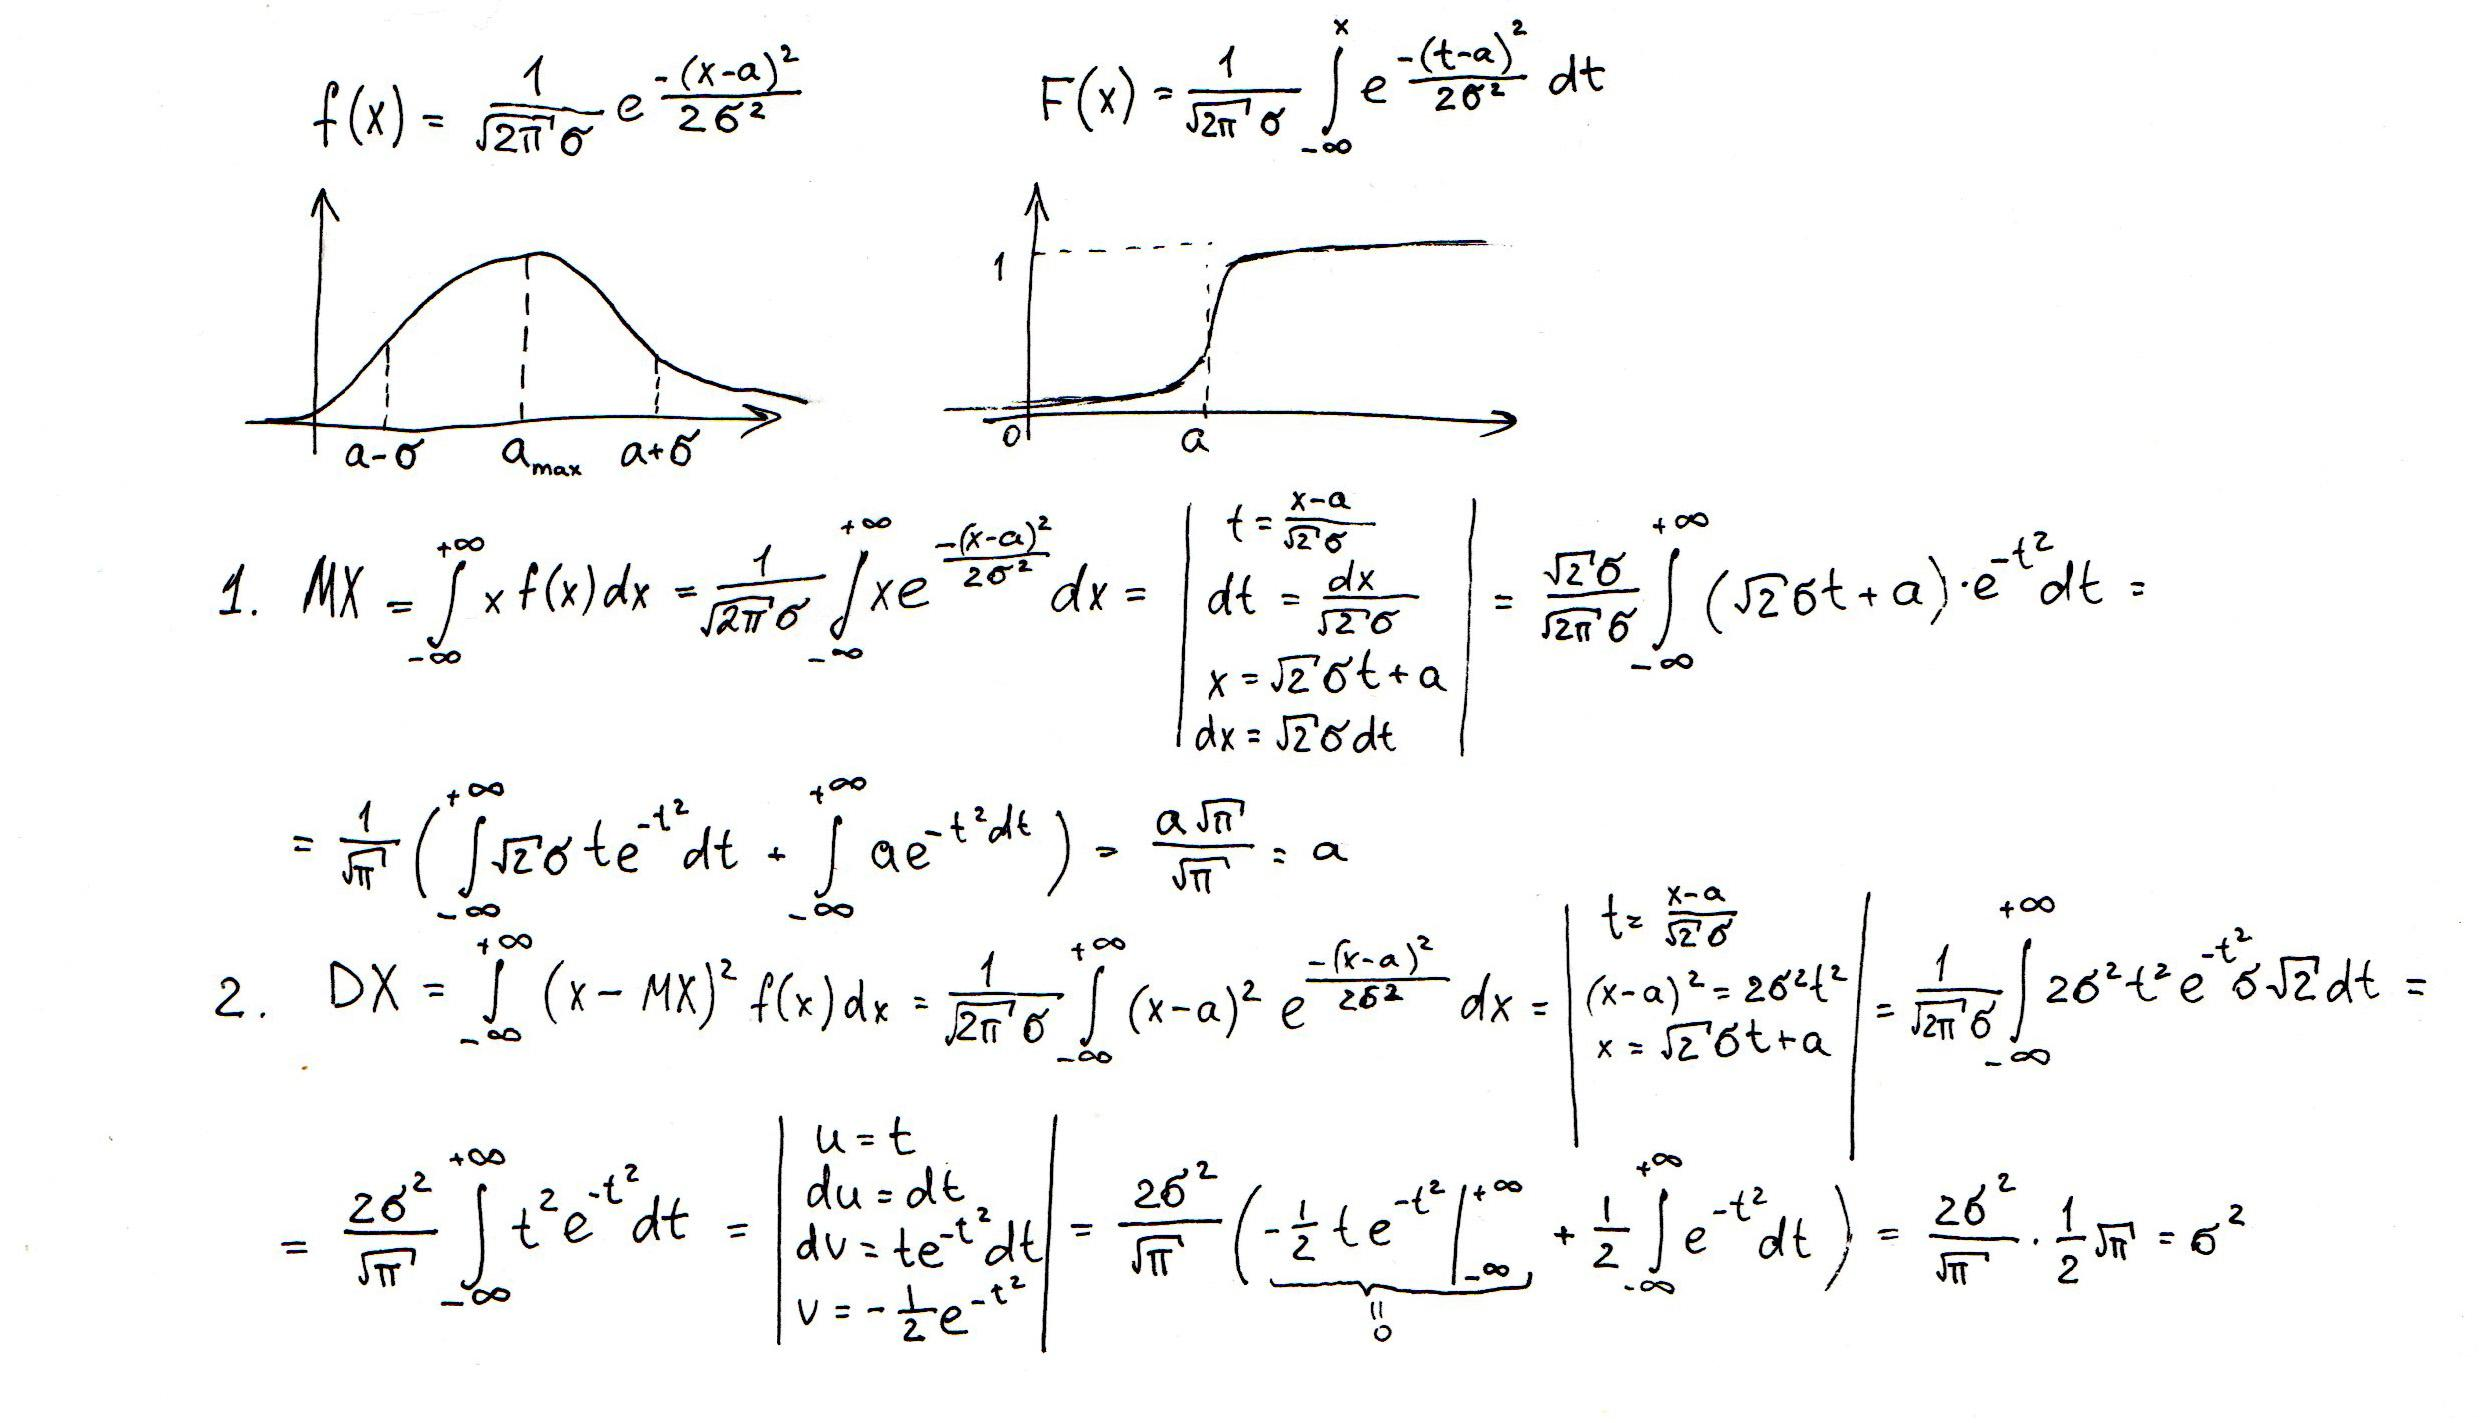 f(x) = \frac{1}{\sqrt{2π} σ} e^{\frac{-(x-a)^2}{2σ^2}}
F(x) = \frac{1}{\sqrt{2π} σ} \int_{-∞}^{x} e^{\frac{-(t-a)^2}{2σ^2}} dt
a-σ a_{max} a+σ
1 0 a
1. MX = \int_{-∞}^{+∞} x f(x) dx = \frac{1}{\sqrt{2π} σ} \int_{-∞}^{+∞} x e^{\frac{-(x-a)^2}{2σ^2}} dx = | t = \frac{x-a}{\sqrt{2} σ} dt = \frac{dx}{\sqrt{2} σ} x = \sqrt{2} σt + a dx = \sqrt{2} σ dt | = \frac{\sqrt{2} σ}{\sqrt{2π} σ} \int_{-∞}^{+∞} (\sqrt{2} σt + a) · e^{-t^2} dt =
= \frac{1}{\sqrt{π}} ( \int_{-∞}^{+∞} \sqrt{2} σ t e^{-t^2} dt + \int_{-∞}^{+∞} a e^{-t^2 dt} ) = \frac{a \sqrt{π}}{\sqrt{π}} = a
2. DX = \int_{-∞}^{+∞} (x - MX)^2 f(x) dx = \frac{1}{\sqrt{2π} σ} \int_{-∞}^{+∞} (x-a)^2 e^{\frac{-(x-a)^2}{2σ^2}} dx = | t = \frac{x-a}{\sqrt{2} σ} (x-a)^2 = 2σ^2 t^2 x = \sqrt{2} σt + a | = \frac{1}{\sqrt{2π} σ} \int_{-∞}^{+∞} 2σ^2 t^2 e^{-t^2} σ \sqrt{2} dt =
= \frac{2σ^2}{\sqrt{π}} \int_{-∞}^{+∞} t^2 e^{-t^2} dt = | u = t du = dt dv = t e^{-t^2} dt v = -\frac{1}{2} e^{-t^2} | = \frac{2σ^2}{\sqrt{π}} ( -\frac{1}{2} t e^{-t^2} |_{-∞}^{+∞} + \frac{1}{2} \int_{-∞}^{+∞} e^{-t^2} dt ) = \frac{2σ^2}{\sqrt{π}} · \frac{1}{2} \sqrt{π} = σ^2
= 0